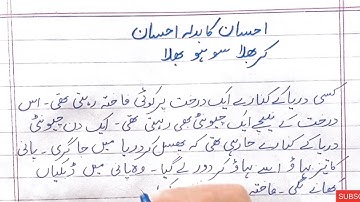 احسان کا بدلہ احسان
کر بھلا سو ہو بھلا
کسی دریا کے کنارے ایک درخت پر کوئی فاختہ رہتی تھی۔ اس
درخت کے نیچے ایک چیونٹی بھی رہتی تھی۔ ایک دن چیونٹی
دریا کے کنارے جا رہی تھی کہ پھسل کر دریا میں جا گری۔ پانی
کا تیز بہاؤ اسے بہاؤ کر دور لے گیا۔ وہ پانی میں ڈبکیاں
کھانے لگی۔ فاختہ
SUBSC